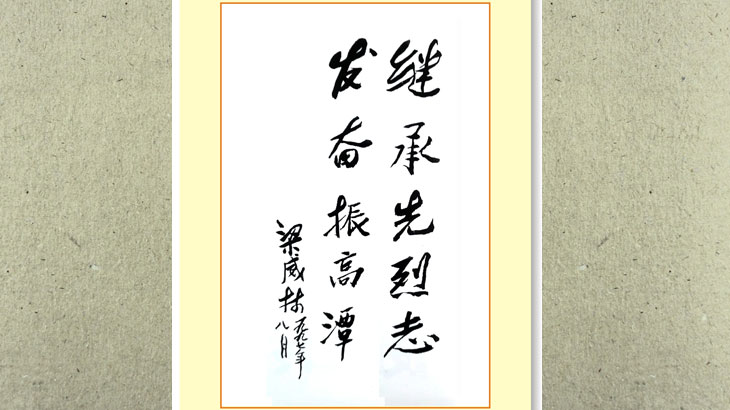 继承先烈志
发奋振高潭
梁威林一九九七年
八月